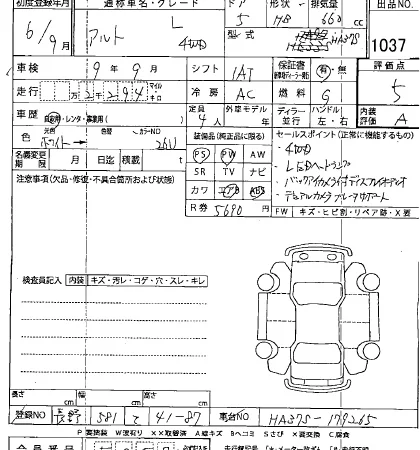 初度登録年月 通称車名・グレード ドア 形状 排気量 出品NO
6/9月 アルト L 4WD 5 HB 660 cc
型式 HA37S 1037
車検 9年9月 シフト IAT 保証書 有・無 評価点
走行 万 2 2 9 4 マイル キロ 冷房 AC 燃料 G 5
車歴 自家用・レンタ・事業用( ) 定員 4人 外車モデル ディーラー 並行 ハンドル G・左 内装評価 A
色 元色 ホワイト 色替 カラーNO 26U 装備品(純正品に限る) セールスポイント(正常に機能するもの)
名義変更期限 月 日迄 積載 t PS PW AW ・4WD
注意事項(欠品・修復・不具合箇所および状態) SR TV ナビ ・LEDヘッドランプ
カワ エアB ABS ・バックアイカメラ付ディスプレイオーディオ
R券 5690 ・デュアルカメラブレーキサポート
FW キズ・ヒビ割・リペア跡・X要
検査員記入 内装 キズ・汚レ・コゲ・穴・スレ・キレ
長さ cm 幅 cm 高さ cm
登録NO 長野 581 て 41-87 車台NO HA37S-179265
P 要塗装 W波有り XX取替済 A線キズ Bヘコミ Sさび ×要交換 C腐食
会員番号